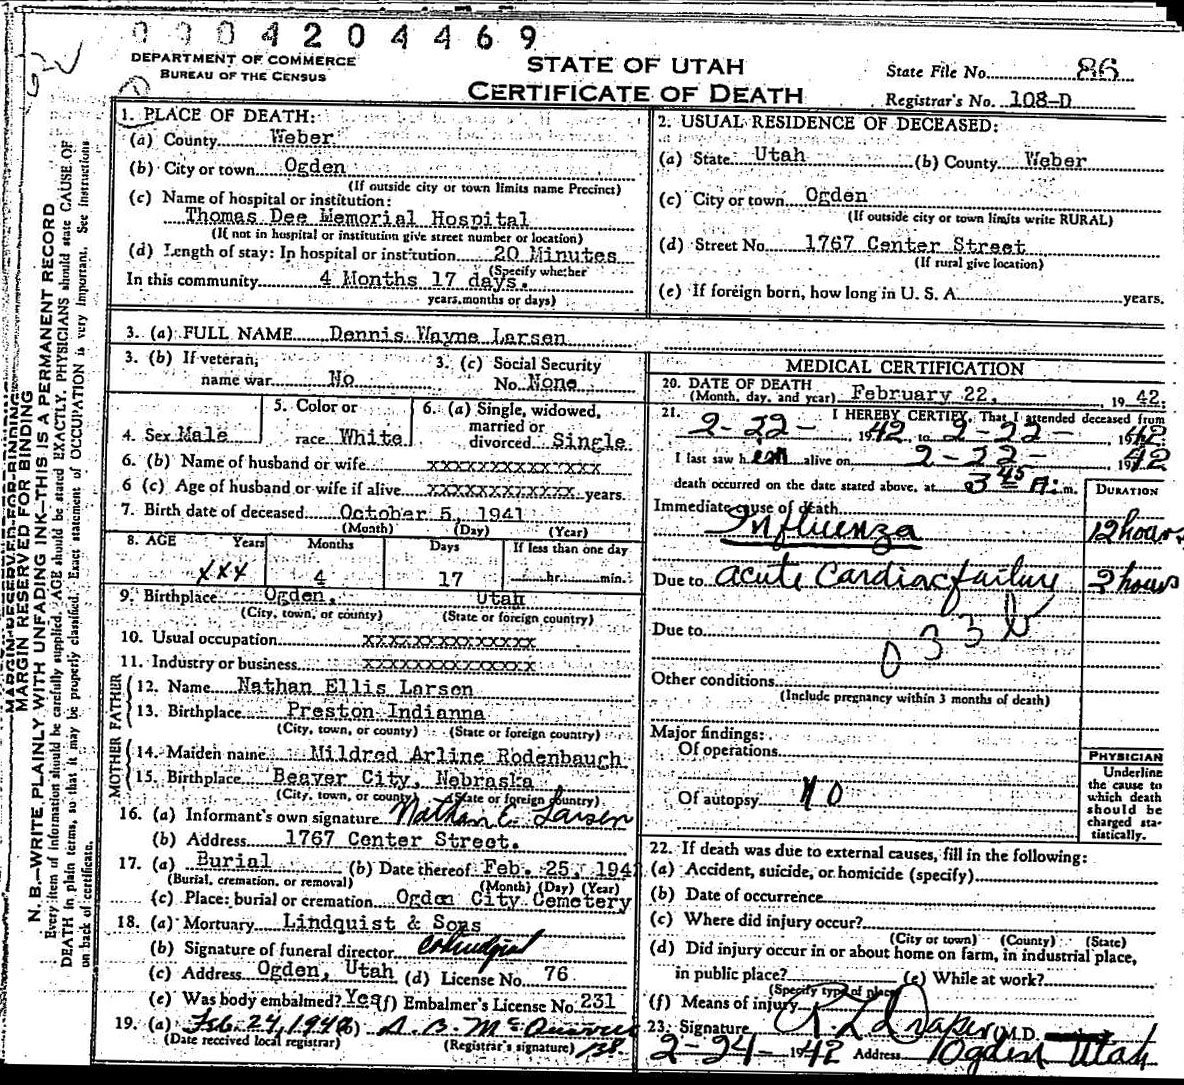 0004204469
DEPARTMENT OF COMMERCE
BUREAU OF THE CENSUS
STATE OF UTAH
CERTIFICATE OF DEATH
State File No. 86
Registrar's No. 108-D
MARGIN RESERVED FOR BINDING
N. B.—WRITE PLAINLY WITH UNFADING INK—THIS IS A PERMANENT RECORD
Every item of information should be carefully supplied. AGE should be stated EXACTLY. PHYSICIANS should state CAUSE OF
DEATH in plain terms, so that it may be properly classified. Exact statement of OCCUPATION is very important. See instructions
on back of certificate.
1. PLACE OF DEATH:
(a) County Weber
(b) City or town Ogden
(If outside city or town limits name Precinct)
(c) Name of hospital or institution:
Thomas Dee Memorial Hospital
(If not in hospital or institution give street number or location)
(d) Length of stay: In hospital or institution 20 Minutes
(Specify whether
In this community 4 Months 17 days.
years, months or days)
2. USUAL RESIDENCE OF DECEASED:
(a) State Utah (b) County Weber
(c) City or town Ogden
(If outside city or town limits write RURAL)
(d) Street No. 1767 Center Street
(If rural give location)
(e) If foreign born, how long in U. S. A. years.
3. (a) FULL NAME Dennis Wayne Larsen
3. (b) If veteran, name war No
3. (c) Social Security No. None
4. Sex Male
5. Color or race White
6. (a) Single, widowed, married or divorced Single
6. (b) Name of husband or wife xxxxxxxxxxxxxxx
6 (c) Age of husband or wife if alive xxxxxxxxxxxxx years.
7. Birth date of deceased October 5, 1941
(Month) (Day) (Year)
8. AGE Years Months Days If less than one day
XXX 4 17 hr. min.
9. Birthplace Ogden, Utah
(City, town, or county) (State or foreign country)
10. Usual occupation xxxxxxxxxxxxxxx
11. Industry or business xxxxxxxxxxxxxxx
FATHER
12. Name Nathan Ellis Larsen
13. Birthplace Preston Indianna
(City, town, or county) (State or foreign country)
MOTHER
14. Maiden name Mildred Arline Rodenbaugh
15. Birthplace Beaver City, Nebraska
(City, town, or county) (State or foreign country)
16. (a) Informant's own signature Nathan E. Larsen
(b) Address 1767 Center Street.
17. (a) Burial (b) Date thereof Feb. 25, 1942
(Burial, cremation, or removal) (Month) (Day) (Year)
(c) Place: burial or cremation Ogden City Cemetery
18. (a) Mortuary Lindquist & Sons
(b) Signature of funeral director
(c) Address Ogden, Utah (d) License No. 76
(e) Was body embalmed? Yes (f) Embalmer's License No. 231
19. (a) Feb. 24, 1942
(Date received local registrar) (Registrar's signature)
MEDICAL CERTIFICATION
20. DATE OF DEATH
(Month, day, and year) February 22, 1942
21. I HEREBY CERTIFY, That I attended deceased from
2-22- 1942 to 2-22- 1942
I last saw h em alive on 2-22- 1942
death occurred on the date stated above, at 3 45 A. m.
DURATION
Immediate cause of death
Influenza 12 hours
Due to acute Cardiac failure 2 hours
Due to
033b
Other conditions
(Include pregnancy within 3 months of death)
Major findings:
Of operations
Of autopsy NO
PHYSICIAN
Underline
the cause to
which death
should be
charged sta-
tistically.
22. If death was due to external causes, fill in the following:
(a) Accident, suicide, or homicide (specify)
(b) Date of occurrence
(c) Where did injury occur?
(City or town) (County) (State)
(d) Did injury occur in or about home on farm, in industrial place,
in public place? (e) While at work?
(Specify type of place)
(f) Means of injury
23. Signature R L Draper M.D.
2-24- 1942 Address Ogden Utah